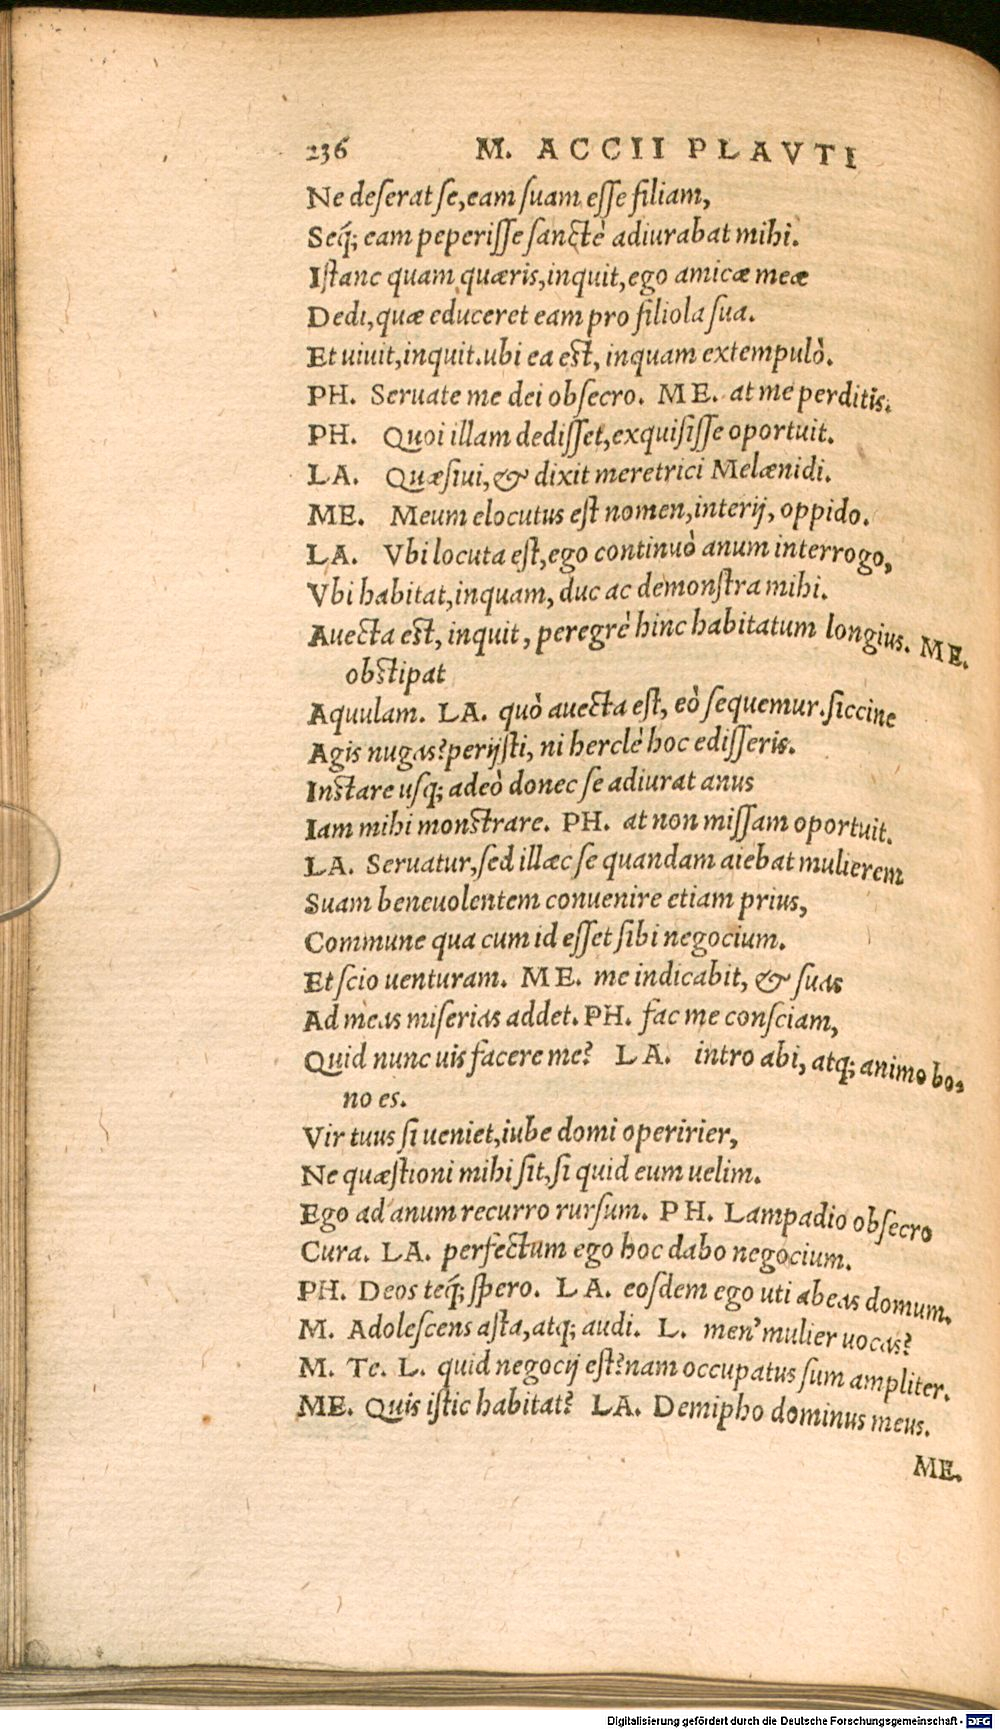 236 M. ACCII PLAVTI
Ne deserat se, eam suam esse filiam,
Seq́; eam peperisse sanctè adiurabat mihi.
Istanc quam quæris, inquit, ego amicæ meæ
Dedi, quæ educeret eam pro filiola sua.
Et uiuit, inquit. ubi ea est, inquam extempulò.
PH. Seruate me dei obsecro. ME. at me perditis.
PH. Quoi illam dedisset, exquisisse oportuit.
LA. Quæsiui, & dixit meretrici Melænidi.
ME. Meum elocutus est nomen, interij, oppido.
LA. Vbi locuta est, ego continuò anum interrogo,
Vbi habitat, inquam, duc ac demonstra mihi.
Auecta est, inquit, peregrè hinc habitatum longius. ME.
obstipat
Aquulam. LA. quò auecta est, eò sequemur. siccine
Agis nugas? perijsti, ni herclè hoc edisseris.
Instare usq; adeò donec se adiurat anus
Iam mihi monstrare. PH. at non missam oportuit.
LA. Seruatur, sed illæc se quandam aiebat mulierem
Suam beneuolentem conuenire etiam prius,
Commune qua cum id esset sibi negocium.
Et scio uenturam. ME. me indicabit, & suas
Ad meas miserias addet. PH. fac me consciam,
Quid nunc uis facere me? LA. intro abi, atq; animo bo-
no es.
Vir tuus si ueniet, iube domi operirier,
Ne quæstioni mihi sit, si quid eum uelim.
Ego ad anum recurro rursum. PH. Lampadio obsecro
Cura. LA. perfectum ego hoc dabo negocium.
PH. Deos teq́; spero. LA. eosdem ego uti abeas domum.
M. Adolescens asta, atq; audi. L. men' mulier uocas?
M. Te. L. quid negocij est? nam occupatus sum ampliter.
ME. Quis istic habitat? LA. Demipho dominus meus.
ME.
Digitalisierung gefördert durch die Deutsche Forschungsgemeinschaft - DFG